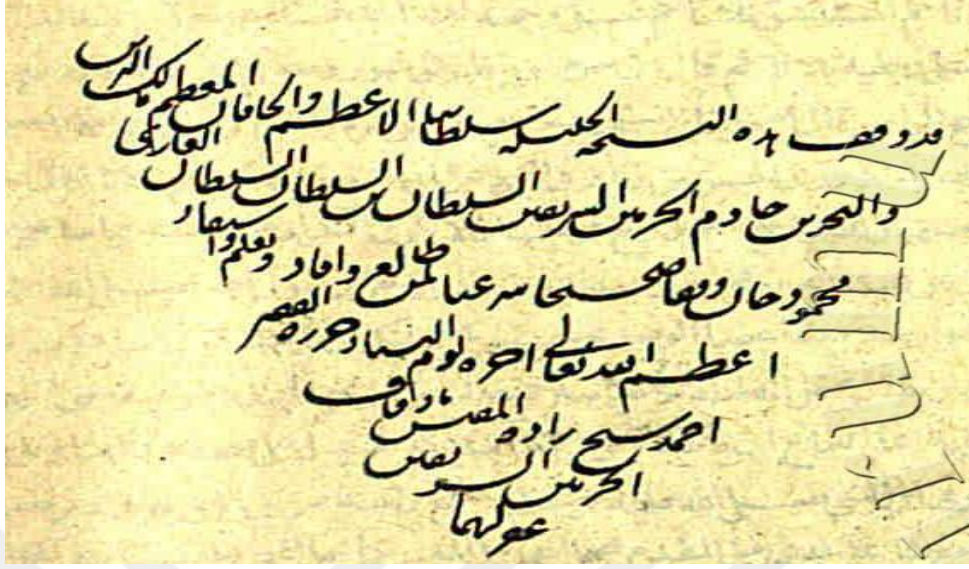 قد وقف هذه النسخة الجليلة سلطاننا الاعظم والخاقان المعظم مالك البرين
والبحرين خادم الحرمين الشريفين السلطان بن السلطان السلطان الغازى
محمود خان وقفا صحيحا شرعيا لمن طالع وافاد وتعلم واستفاد
اعظم الله تعالى اجره يوم التناد حرره الفقير
احمد شيخ زاده المفتش باوقاف
الحرمين الشريفين
غفر لهما